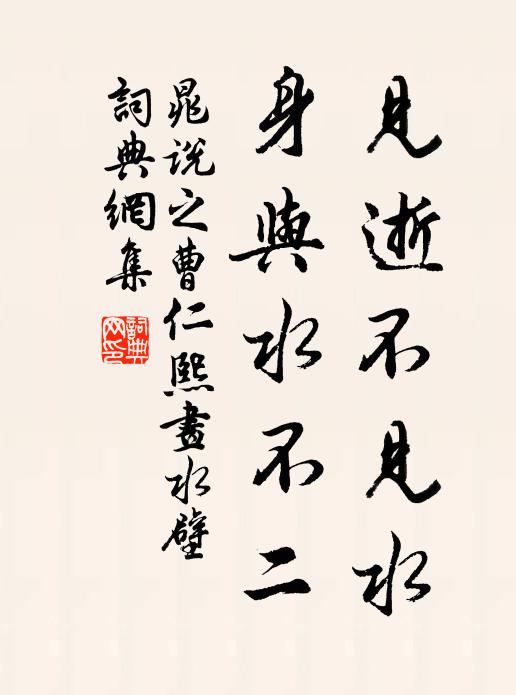 見逝不見水
身與水不二
晁說之曹仁熙畫水壁
詞典網集
詞典
网印